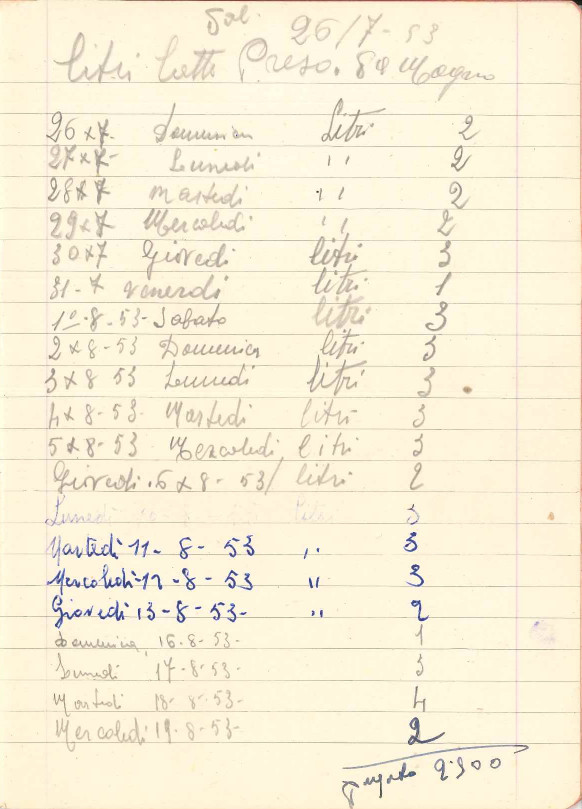 26/7-53
litri latte Preso.
26x7- Domenica Litri 2
27x7- Lunedi ,, 2
28x7 martedi ,, 2
29x7- Mercoledi ,, 2
30x7 Giovedi litri 3
31-7 venerdi litri 1
1º-8-53- Sabato litri 3
2x8-53 Domenica litri 3
3x8 53 Lunedi litri 3
4x8-53- Martedi litri 3
5x8-53 Mercoledi litri 3
Giovedi.6x8-53/ litri 2
Lunedi 3
Martedi 11-8-53 ,, 3
Mercoledi-12-8-53 ,, 3
Giovedi 13-8-53- ,, 2
Domenica, 16-8-53- 1
Lunedi 17-8-53- 3
Martedi 18-8-53- 4
Mercoledi 19-8-53- 2